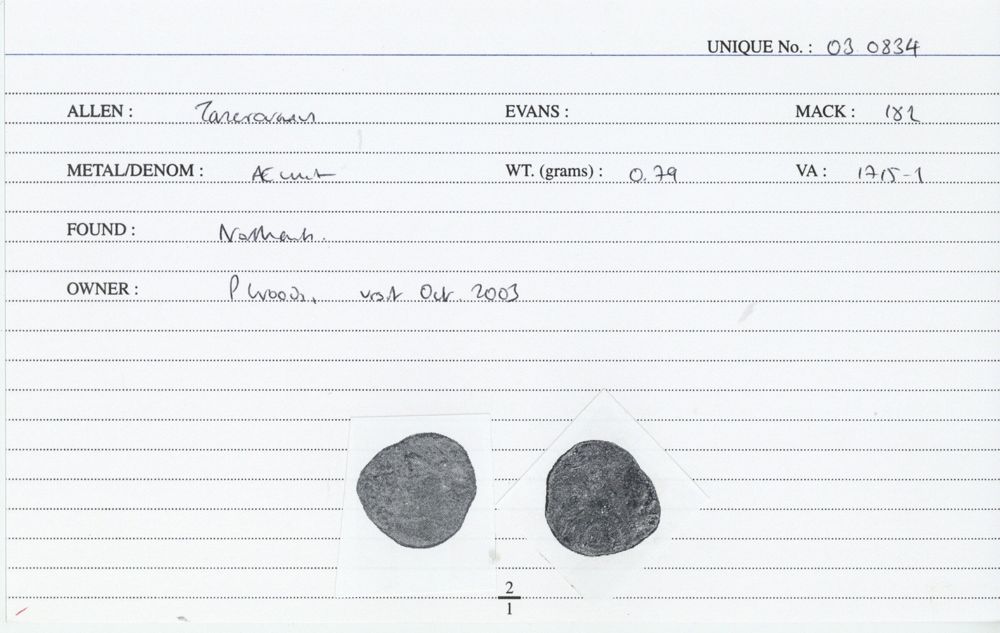 UNIQUE No. : 03 0834
ALLEN : Tasciovanus EVANS : MACK : 182
METAL/DENOM : Æ unit WT. (grams) : 0.79 VA : 1715-1
FOUND : Northants.
OWNER : P Woods, Oct. 2003
2
1